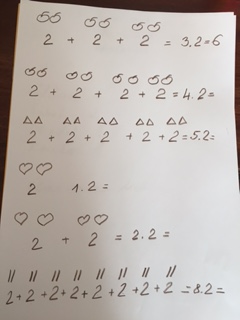 2 + 2 + 2 = 3.2=6
2 + 2 + 2 + 2 = 4.2=
2 + 2 + 2 + 2 + 2 = 5.2=
2 1.2 =
2 + 2 = 2.2 =
2+2+2+2+2+2+2+2 =8.2=